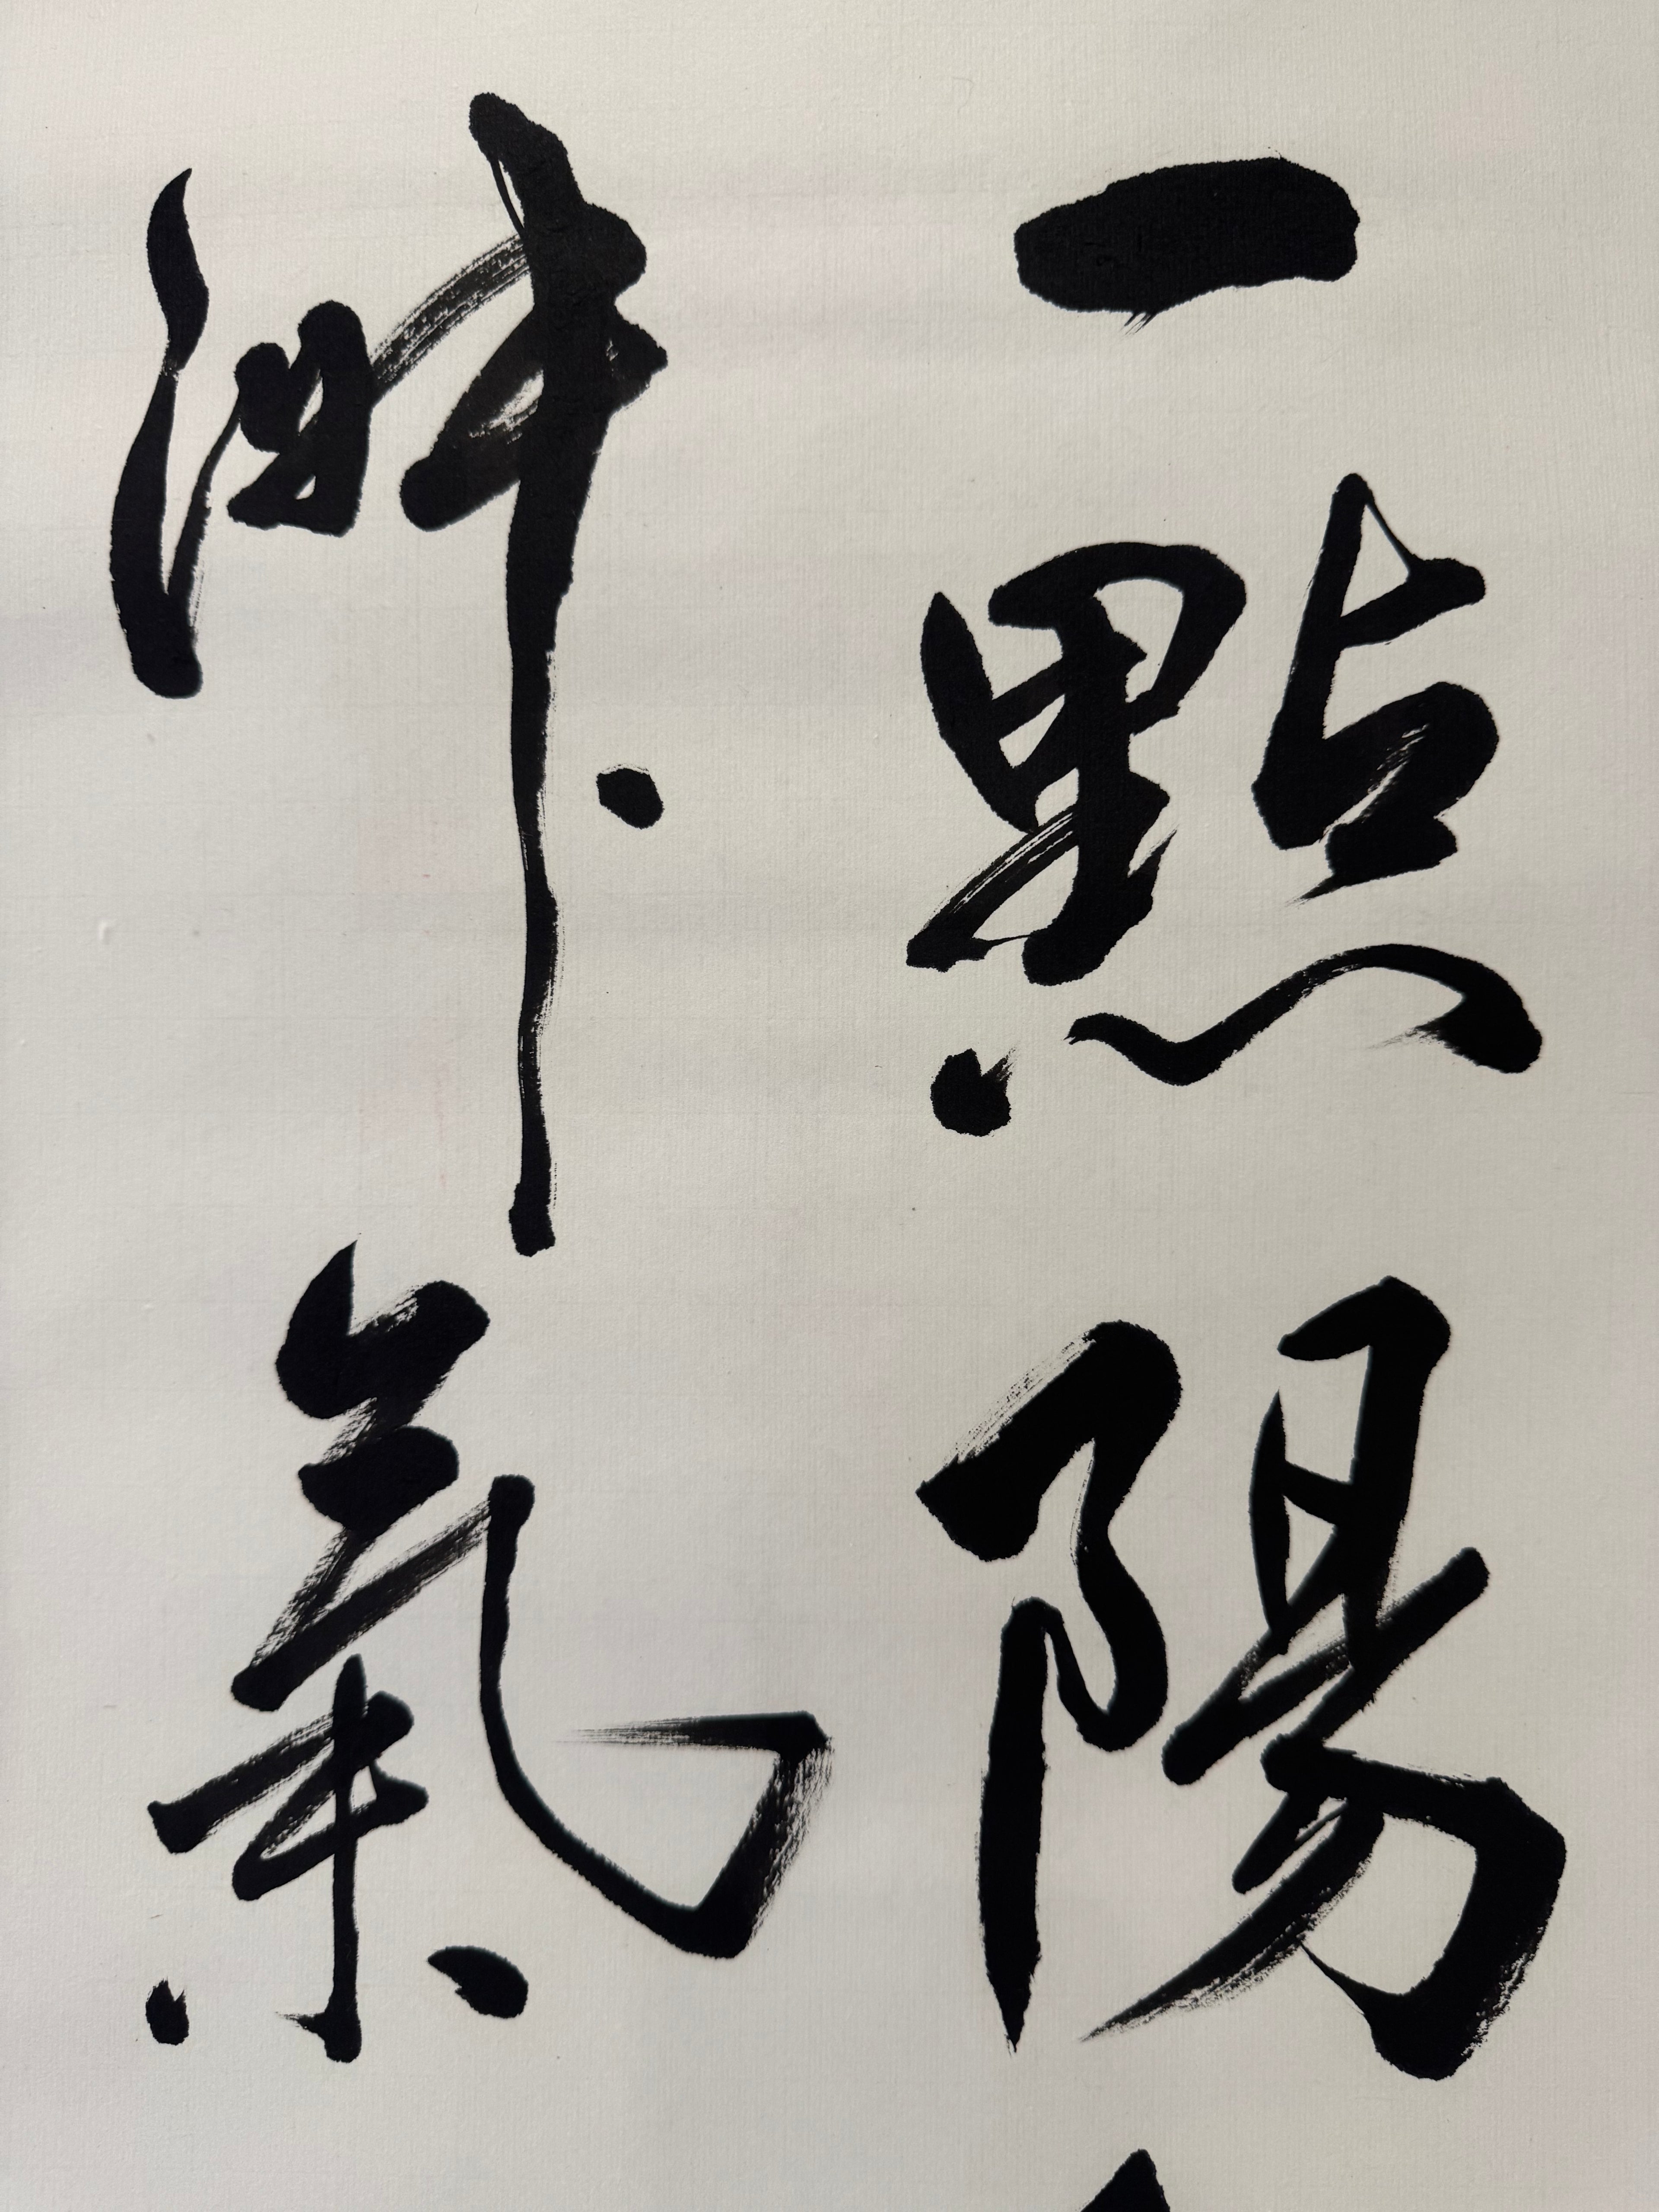 一點陽
氣